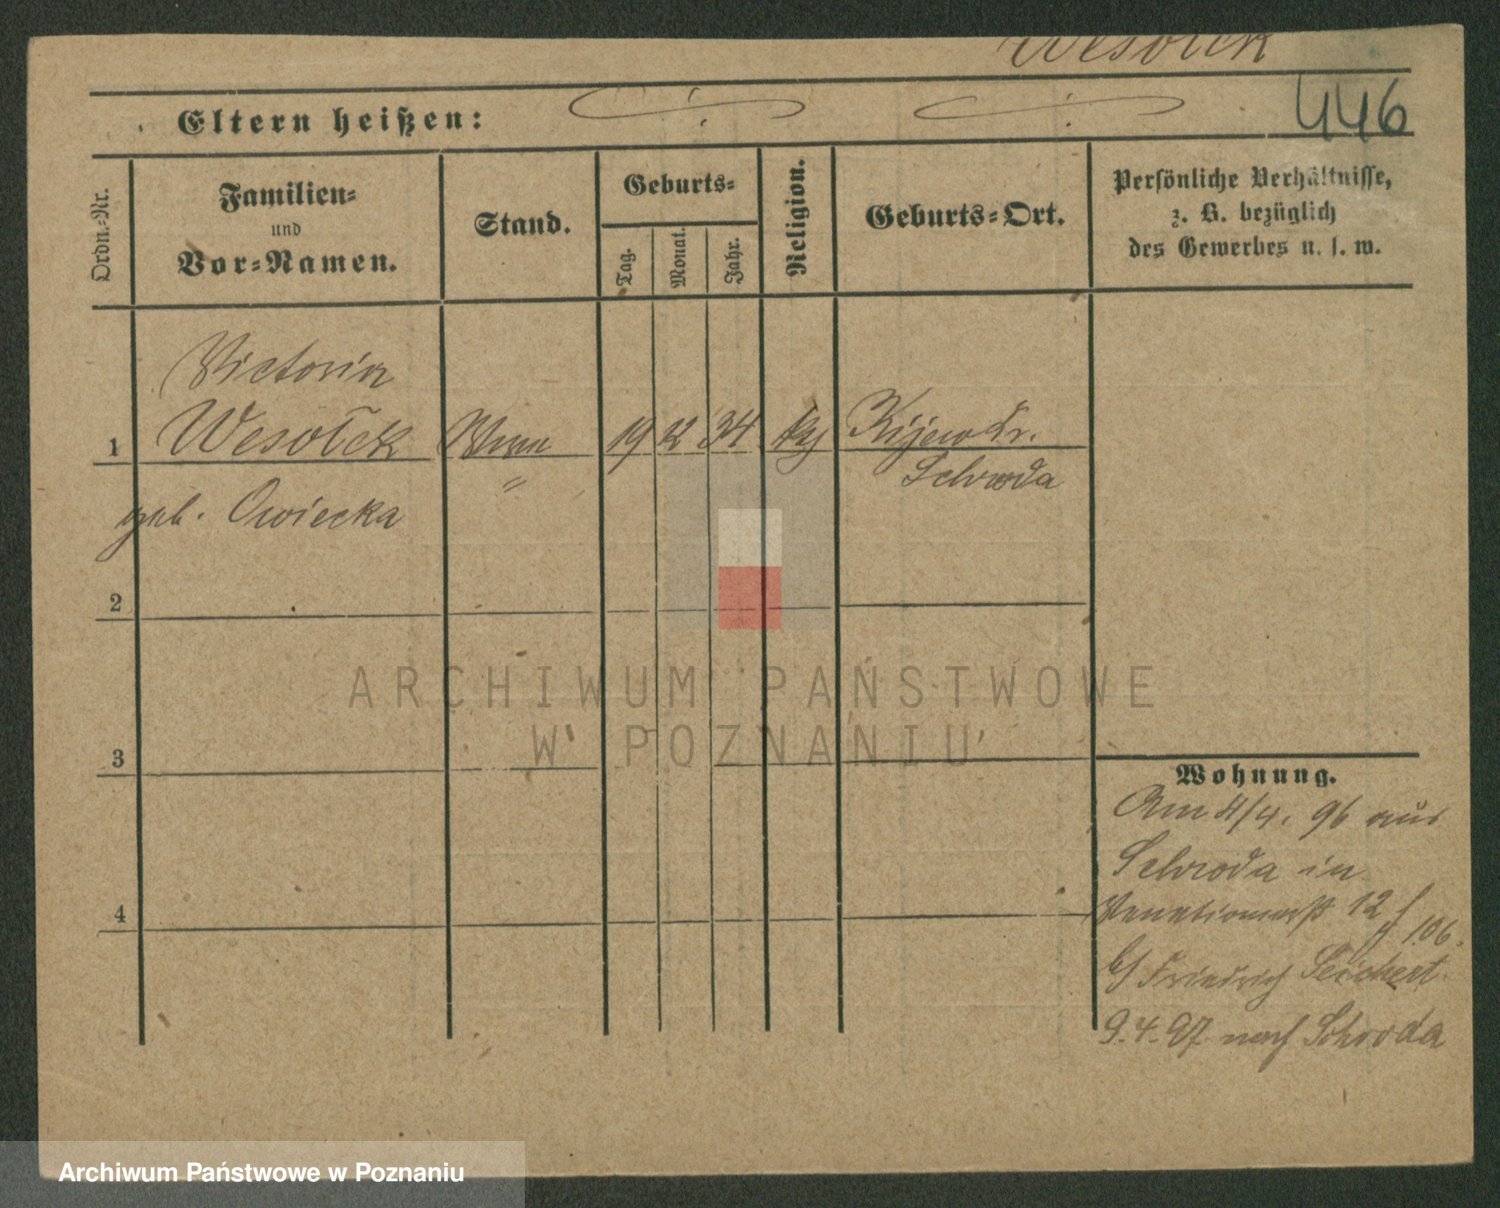 Wesołek
Eltern heißen:
446
Ordn.-Nr.
Familien-
und
Vor-Namen.
Stand.
Geburts-
Tag.
Monat.
Jahr.
Religion.
Geburts-Ort.
Persönliche Verhältnisse,
z. B. bezüglich
des Gewerbes u. s. w.
Victoria
1 Wesołek Wwe 19 12 34 kg Kijewo Kr.
Schroda
geb. Owiecka
2
3
4
Wohnung.
Am 4/4. 96 aus
Schroda in
Venetianerst 12
106.
b/ Friedrich Seichert
9.4.97 nach Schroda
ARCHIWUM PAŃSTWOWE
W POZNANIU
Archiwum Państwowe w Poznaniu